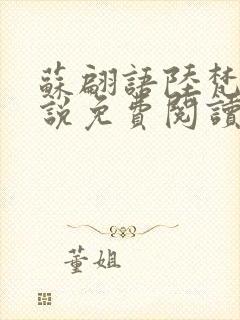 蘇翩語陸梵
說免費閱讀
董姐